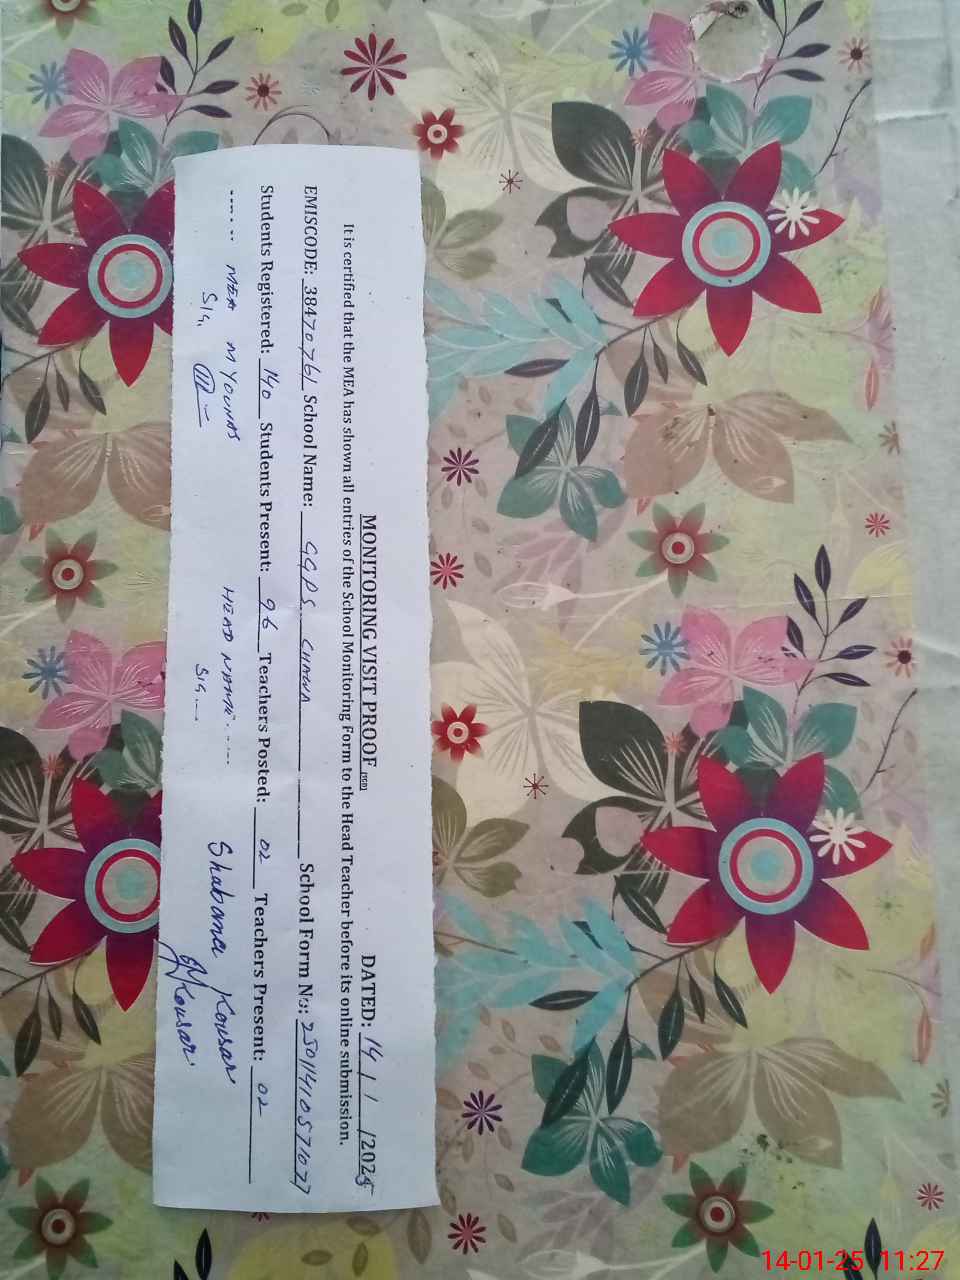 MONITORING VISIT PROOF DATED: 14/1/2025
It is certified that the MEA has shown all entries of the School Monitoring Form to the Head Teacher before its online submission.
EMISCODE: 38470761 School Name: GGPS CHAWA School Form No: 25011410571077
Students Registered: 140 Students Present: 96 Teachers Posted: 02 Teachers Present: 02
MEA M YOUNAS HEAD NAME.... Shabana Kousar
SIG. SIG... Kousar
14-01-25 11:27